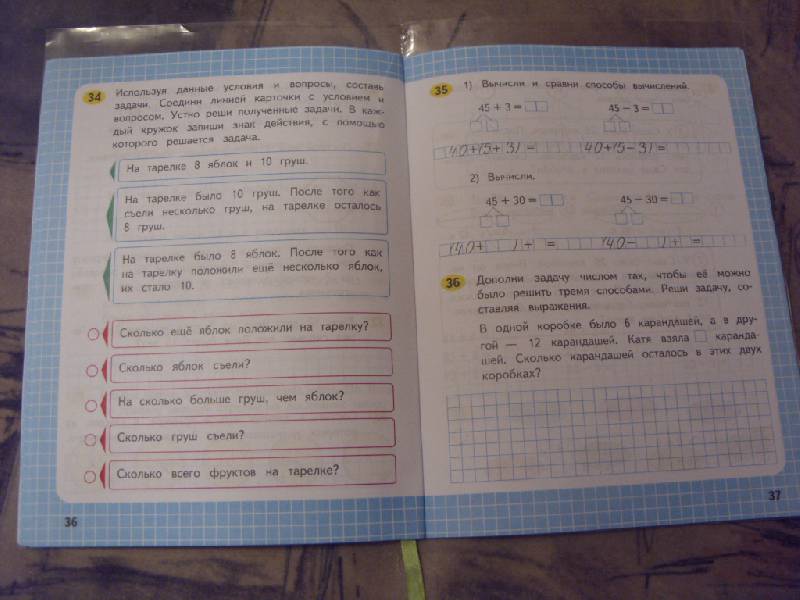 34 Используя данные условия и вопросы, составь
задачи. Соедини линией карточки с условием и
вопросом. Устно реши полученные задачи. В каж-
дый кружок запиши знак действия, с помощью
которого решается задача.
На тарелке 8 яблок и 10 груш.
На тарелке было 10 груш. После того как
съели несколько груш, на тарелке осталось
8 груш.
На тарелке было 8 яблок. После того как
на тарелку положили ещё несколько яблок,
их стало 10.
Сколько ещё яблок положили на тарелку?
Сколько яблок съели?
На сколько больше груш, чем яблок?
Сколько груш съели?
Сколько всего фруктов на тарелке?
36
35 1) Вычисли и сравни способы вычислений.
45 + 3 = 45 − 3 =
40+(5+3)= 40+(5−3)=
2) Вычисли.
45 + 30 = 45 − 30 =
(40+ )+ = (40− )+ =
36 Дополни задачу числом так, чтобы её можно
было решить тремя способами. Реши задачу, со-
ставляя выражения.
В одной коробке было 6 карандашей, а в дру-
гой — 12 карандашей. Катя взяла каранда-
шей. Сколько карандашей осталось в этих двух
коробках?
37